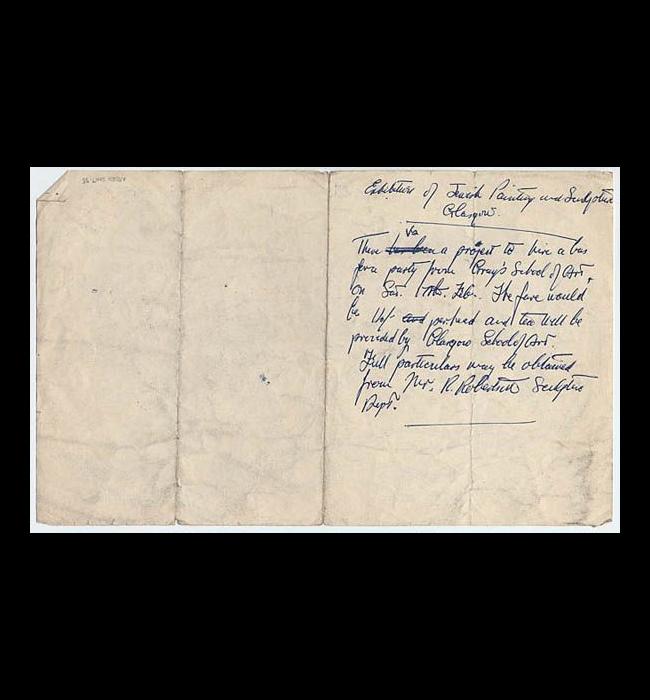 Exhibition of Jewish Painting and Sculpture
Glasgow.
There is a project to hire a bus
for a party from Gray's School of Art,
on Sat. Feb. The fare would
be and per head and tea will be
provided by Glasgow School of Art.
Full particulars may be obtained
from Mr. R. Robertson Sculpture
Dept.